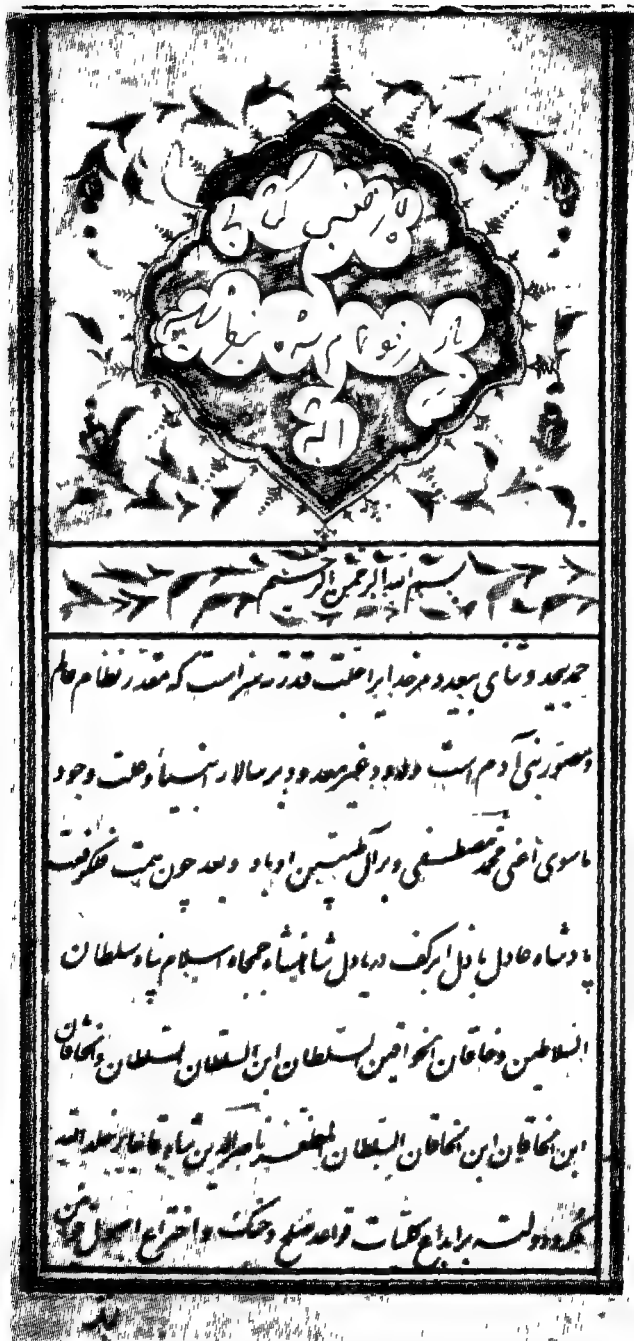 بسم الله الرحمن الرحیم
حمد بیحد و ثنای بیعدد مر خدایرا جلت قدرته سزاست که مقدر نظام عالم
و مصور بنی آدم است و درود غیر معدود بر سالار انبیأ و علت وجود
ماسوی اعنی محمد مصطفی و بر آل طیبین او باد و بعد چون همت فلک رفعت
پادشاه عادل باذل ابر کف دریا دل شاهنشاه جمجاه اسلام پناه سلطان
السلاطین و خاقان الخواقین السلطان ابن السلطان السلطان و الخاقان
ابن الخاقان ابن الخاقان السلطان المظفر ناصرالدین شاه قاجار خلد الله
ملکه و دولته بر ابداع کلیات قواعد صلح و جنگ و اختراع اصول قوانین